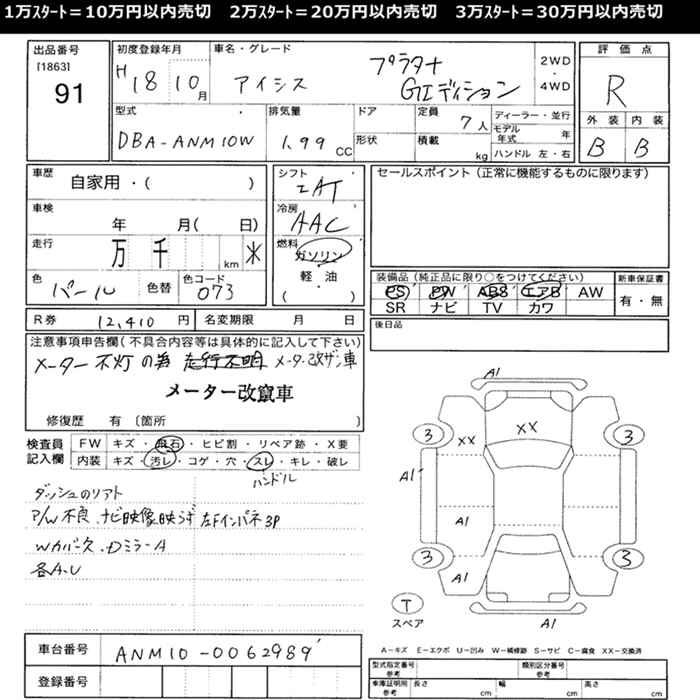 1万スタート＝10万円以内売切　2万スタート＝20万円以内売切　3万スタート＝30万円以内売切
出品番号 [1863] 91
初度登録年月 H18 10月
車名・グレード アイシス プラタナ Gエディション
2WD ・ 4WD
評価点 R
外装 B 内装 B
型式 DBA-ANM10W
排気量 1.99 CC
ドア 形状
定員 7人 積載 kg
ディーラー・並行
モデル年式 年
ハンドル 左・右
車歴 自家用・( )
車検 年 月( 日)
走行 万 千 km ＊
色 パール 色替 色コード 073
シフト IAT
冷房 AAC
燃料 ガソリン
軽・油
( )
セールスポイント（正常に機能するものに限ります）
装備品（純正品に限り○をつけてください）
PS PW ABS エアB AW
SR ナビ TV カワ
新車保証書 有・無
後日品
R券 12,410 円 名変期限 月 日
注意事項申告欄(不具合内容等は具体的に記入して下さい)
メーター不灯の為 走行不明 メーター改ザン車
メーター改竄車
修復歴 有 〔箇所 〕
検査員記入欄
FW キズ・飛石・ヒビ割・リペア跡・X要
内装 キズ・汚レ・コゲ・穴・スレ・キレ・破レ
ハンドル
ダッシュのリアト
P/W不良、ナビ映像映らず 左Fインパネ3P
Wカバー欠、Dミラ-A
各A.U
A1
3 XX XX 3
A1 A1 A1
3 A1 3
A1
T スペア
A－キズ E－エクボ U－凹み W－補修跡 S－サビ C－腐食 XX－交換済
車台番号 ANM10-0062989
登録番号
型式指定番号 参考 類別区分番号 参考
車庫証明用 参考 長さ cm 幅 cm 高さ cm